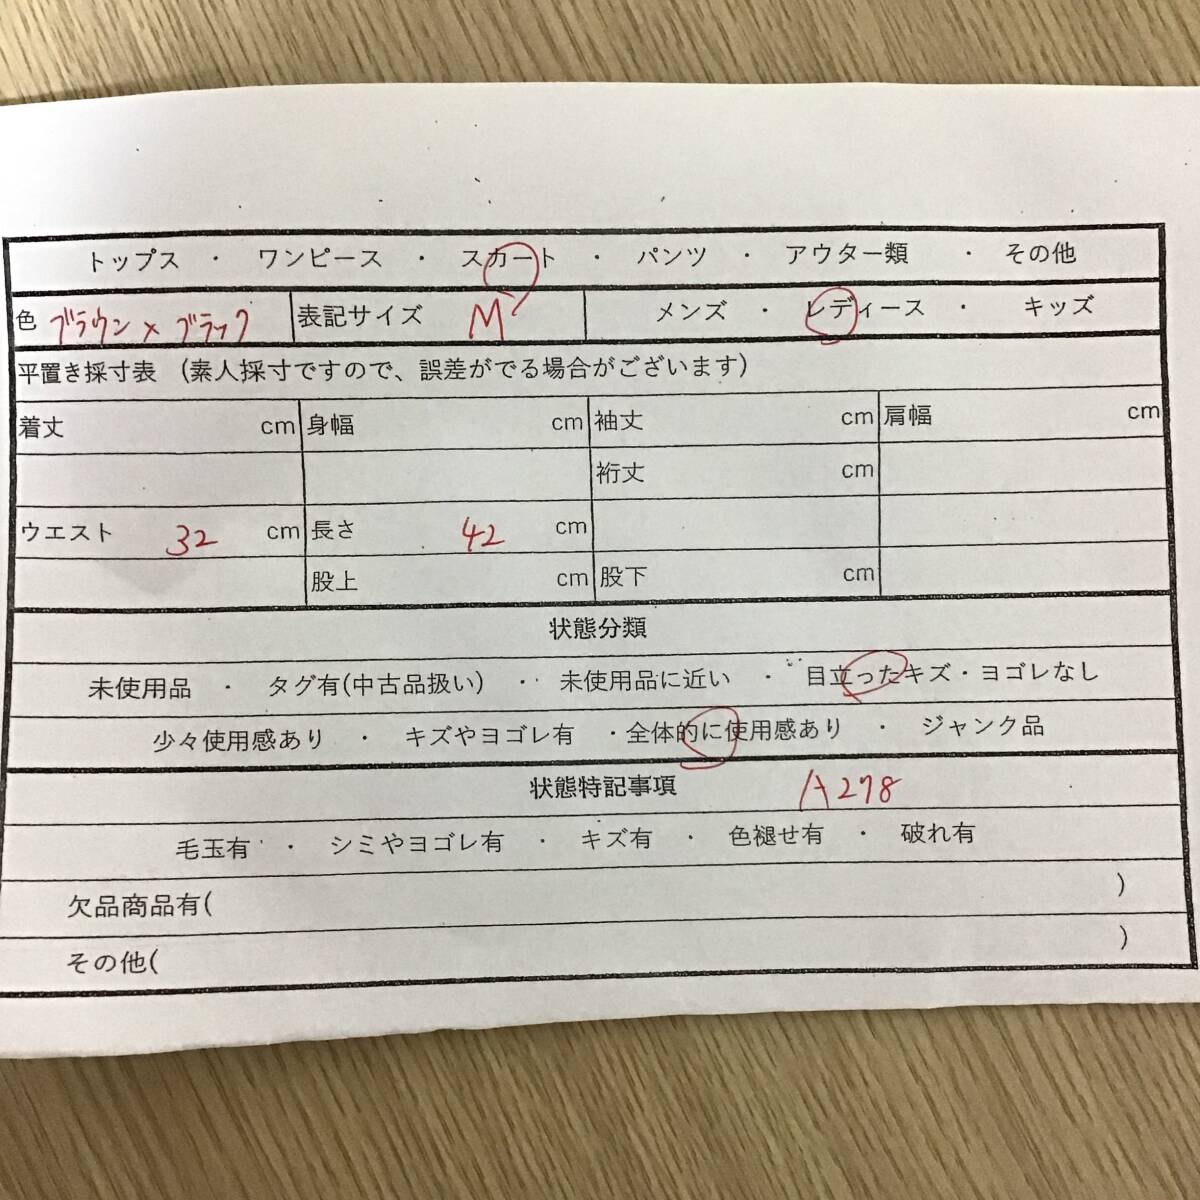 トップス ・ ワンピース ・ スカート ・ パンツ ・ アウター類 ・ その他
色 ブラウン×ブラック 表記サイズ M メンズ ・ レディース ・ キッズ
平置き採寸表 (素人採寸ですので、誤差がでる場合がございます)
着丈 cm 身幅 cm 袖丈 cm 肩幅 cm
裄丈 cm
ウエスト 32 cm 長さ 42 cm
股上 cm 股下 cm
状態分類
未使用品 ・ タグ有(中古品扱い) ・ 未使用品に近い ・ 目立ったキズ・ヨゴレなし
少々使用感あり ・ キズやヨゴレ有 ・全体的に使用感あり ・ ジャンク品
状態特記事項 A278
毛玉有 ・ シミやヨゴレ有 ・ キズ有 ・ 色褪せ有 ・ 破れ有
欠品商品有( )
その他( )